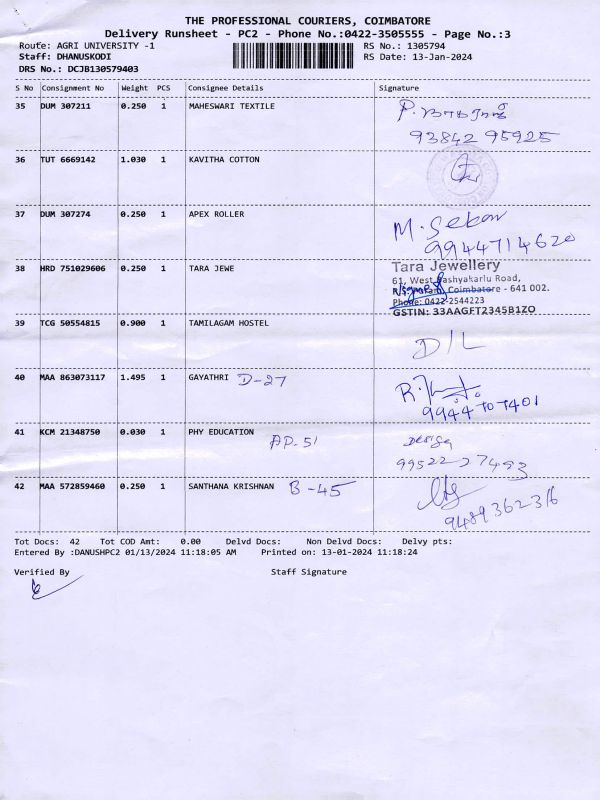 THE PROFESSIONAL COURIERS, COIMBATORE
Delivery Runsheet - PC2 - Phone No.:0422-3505555 - Page No.:3
Route: AGRI UNIVERSITY -1 RS No.: 1305794
Staff: DHANUSKODI RS Date: 13-Jan-2024
DRS No.: DCJB130579403
S No Consignment No Weight PCS Consignee Details Signature
35 DUM 307211 0.250 1 MAHESWARI TEXTILE
93842 95925
36 TUT 6669142 1.030 1 KAVITHA COTTON
37 DUM 307274 0.250 1 APEX ROLLER M. Sekar
9944714620
38 HRD 751029606 0.250 1 TARA JEWE Tara Jewellery
61, West Bashyakarlu Road,
R.S. Puram, Coimbatore - 641 002.
Phone: 0422-2544223
GSTIN: 33AAGFT2345B1ZO
39 TCG 50554815 0.900 1 TAMILAGAM HOSTEL D/L
40 MAA 863073117 1.495 1 GAYATHRI D-27
41 KCM 21348750 0.030 1 PHY EDUCATION
AD-51
42 MAA 572859460 0.250 1 SANTHANA KRISHNAN B-45
9489362316
Tot Docs: 42 Tot COD Amt: 0.00 Delvd Docs: Non Delvd Docs: Delvy pts:
Entered By :DANUSHPC2 01/13/2024 11:18:05 AM Printed on: 13-01-2024 11:18:24
Verified By Staff Signature